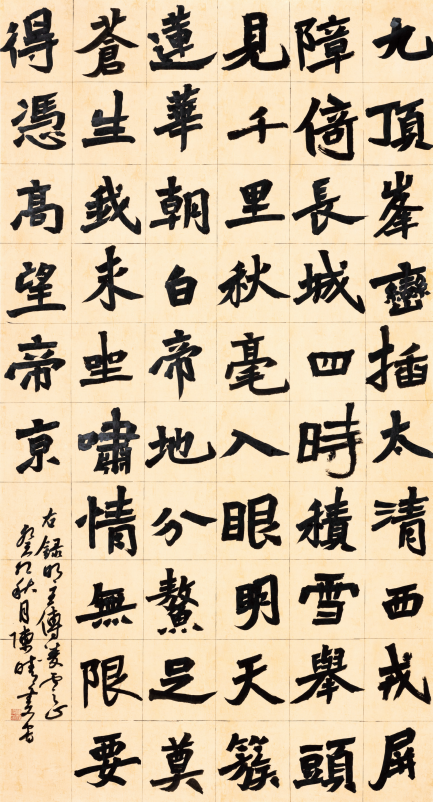 九頂峯巒插太清西戎屏
障倚長城四時積雪舉頭
見千里秋毫入眼明天簇
蓮華朝白帝地分鰲足奠
蒼生我来坐嘯情無限要
得憑高望帝京
右録明王傳
秋月陳書